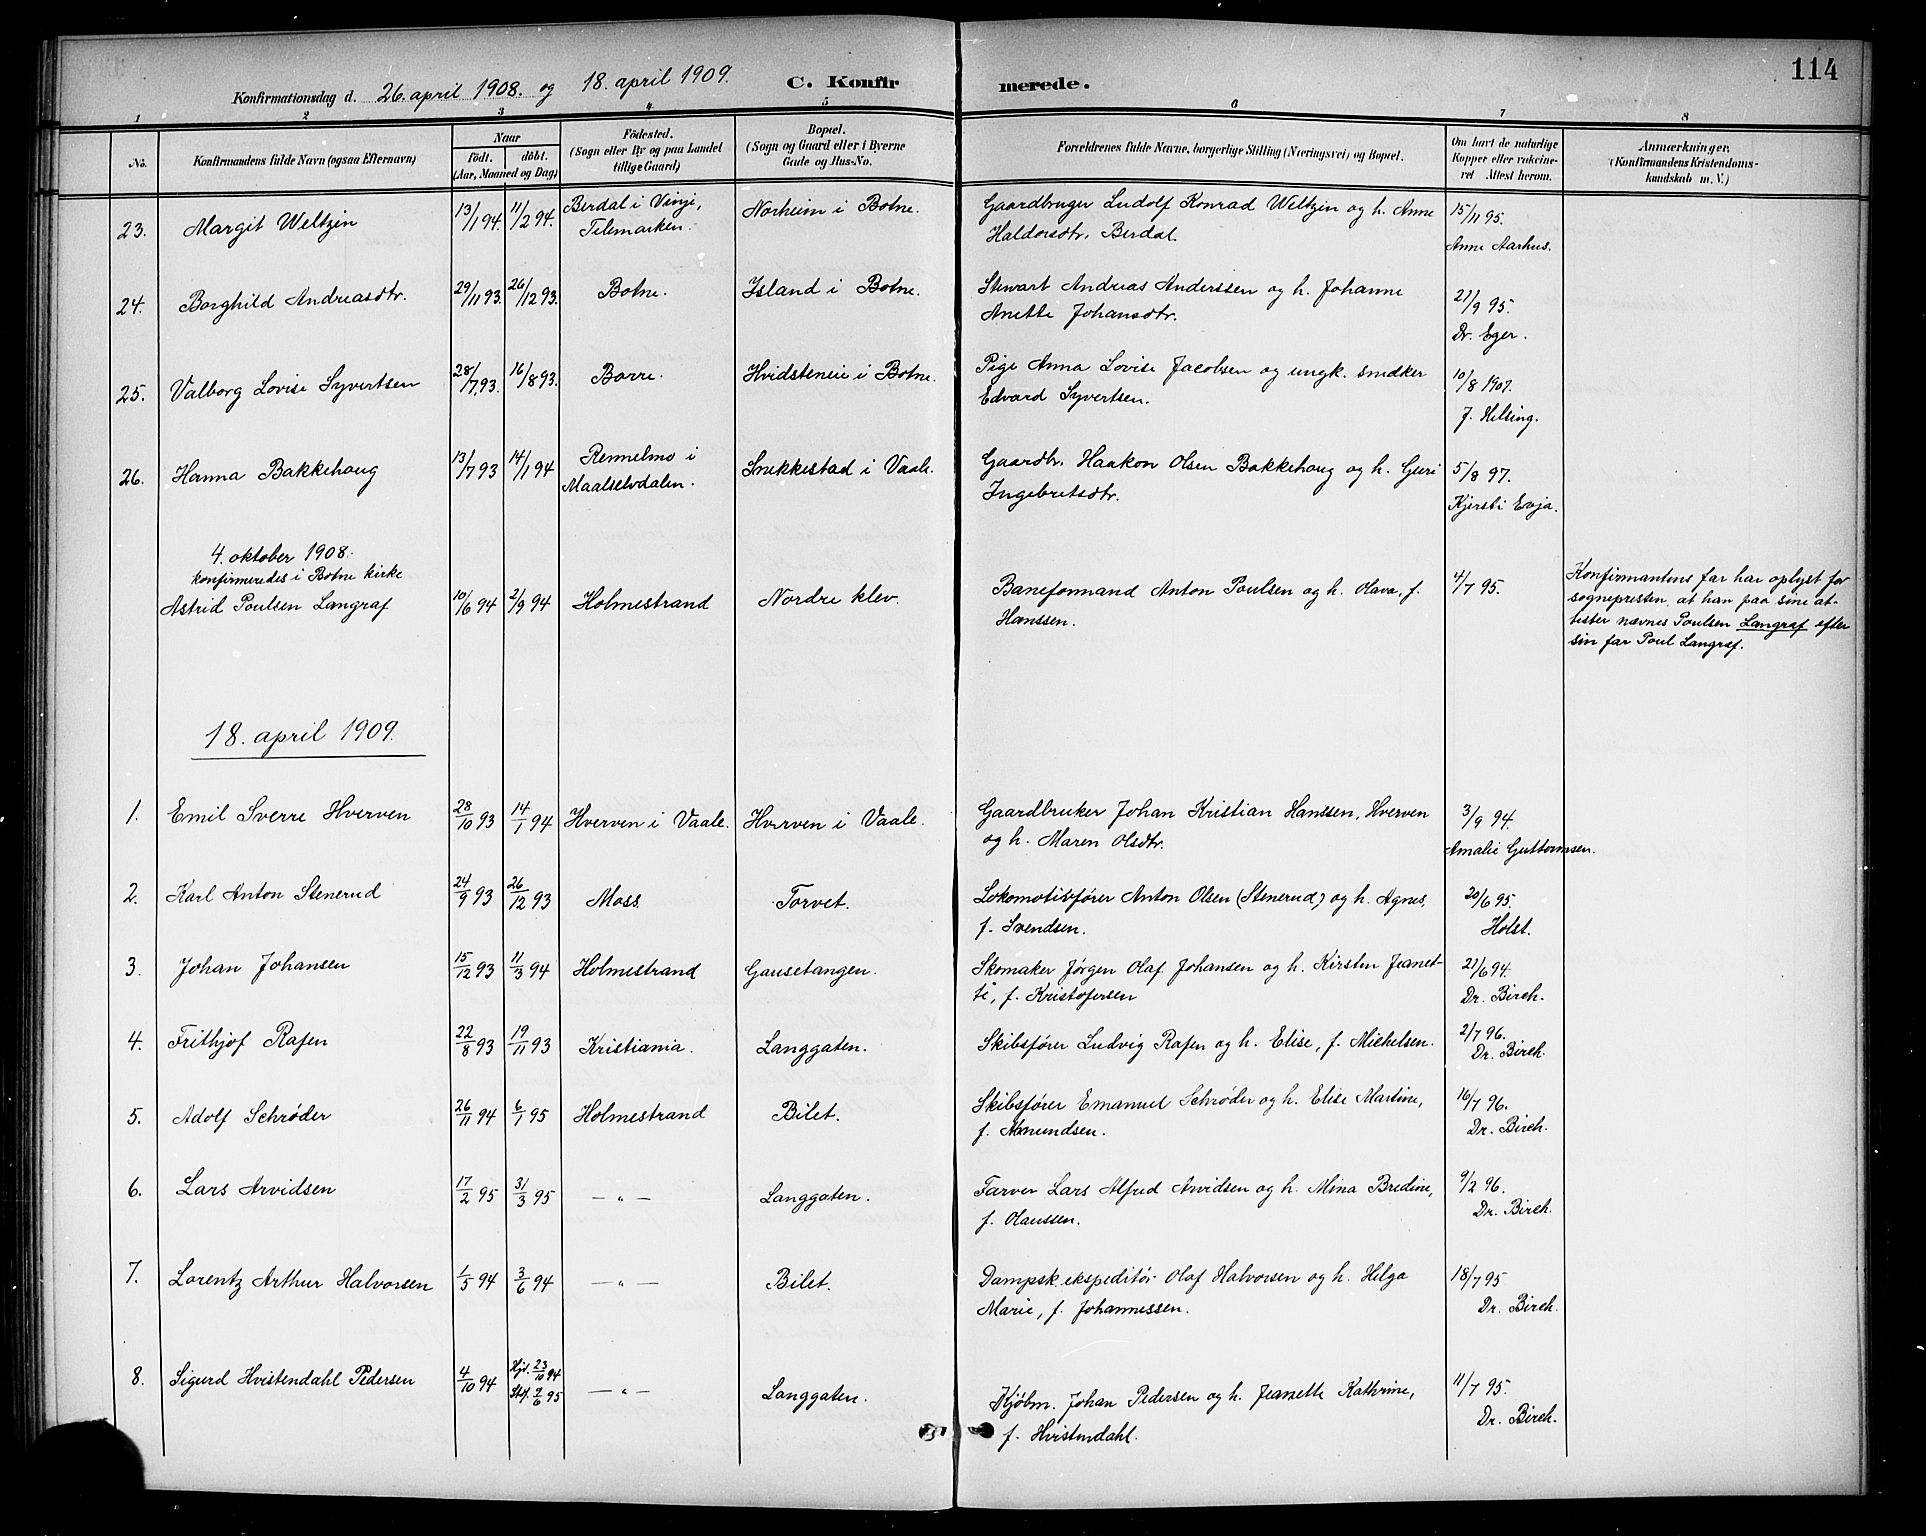 114
Konfirmationsdag d. 26. april 1908. og 18. april 1909. C. Konfir merede.
1 2 3 4 5 6 7 8
No. Konfirmandens fulde Navn (ogsaa Efternavn) Naar födt. döbt. (Aar, Maaned og Dag) Födested. (Sogn eller By og paa Landet tillige Gaard) Bopæl. (Sogn og Gaard eller i Byerne Gade og Hus-No. Forældrenes fulde Navne, borgerlige Stilling (Næringsvei) og Bopæl. Om havt de naturlige Kopper eller vakcineret Attest herom. Anmærkninger. (Konfirmandens Kristendomskundskab m. V.)
23. Margit Weltzin 13/1 94. 11/2 94. Berdal i Vinje, Telemarken. Norheim i Botne. Gaardbruger Ludolf Konrad Weltzin og h. Anne 15/11 95.
Haldorsdtr. Berdal. Anne Aarhus.
24. Borghild Andreasdtr. 29/11 93. 26/12 93. Botne. Island i Botne. Stewart Andreas Anderssen og h. Johanne 21/9 95.
Anette Johansdtr. Dr. Eger.
25. Valborg Lovise Syvertsen 28/7 93. 16/8 93. Borre. Hvidsteneie i Botne. Pige Anna Lovise Jacobsen og ungk. snedker 10/8 1907.
Edvard Syvertsen. J. Helsing.
26. Hanna Bakkehaug 13/7 93 14/1 94 Rennelmo i Maalselvdalen. Snekkestad i Vaale. Gaardbr. Haakon Olsen Bakkehaug og h. Guri 5/8 97.
Ingebretsdtr. Kjersti Evja.
4. oktober 1908.
konfirmeredes i Botne kirke
Astrid Poulsen Langraf 10/6 94 2/9 94 Holmestrand Nordre klev. Baneformand Anton Poulsen og h. Olava, f. 4/7 95. Konfirmantens far har oplyst for
Hanssen. sognepresten, at han paa sine at-
tester nævnes Poulsen Langraf efter
sin far Poul Langraf.
18. april 1909.
1. Emil Sverre Hverven 28/10 93 14/1 94 Hverven i Vaale. Hverven i Vaale. Gaardbruker Johan Kristian Hanssen, Hverven 3/9 94.
og h. Maren Olsdtr. Amalie Guttormsen.
2. Karl Anton Stenerud 24/9 93 26/12 93 Moss. Torvet. Lokomotivfører Anton Olsen (Stenerud) og h. Agnes, 20/6 95.
f. Svendsen. Holst.
3. Johan Johansen 15/12 93 11/3 94 Holmestrand Gausetangen. Skomaker Jørgen Olaf Johansen og h. Kirsten Jeanet- 21/6 94.
te, f. Kristofersen Dr. Birch.
4. Frithjof Rafen 22/8 93 19/11 93 Kristiania. Langgaten. Skibsfører Ludvig Rafen og h. Elise, f. Michelsen. 2/7 96.
Dr. Birch.
5. Adolf Schrøder 26/11 94 6/1 95 Holmestrand Bilet. Skibsfører Emanuel Schrøder og h. Elise Martine, 16/7 96.
f. Amundsen. Dr. Birch.
6. Lars Arvidsen 17/2 95 31/3 95 — „ — Langgaten. Farver Lars Alfred Arvidsen og h. Mina Bredine, 9/2 96.
f. Olaussen. Dr. Birch.
7. Lorentz Arthur Halvorsen 1/5 94 3/6 94 — „ — Bilet. Dampsk. ekspeditør Olaf Halvorsen og h. Helga 18/7 95
Marie, f. Johannessen. Dr. Birch.
8. Sigurd Hvistendahl Pedersen 4/10 94 Hjd. 23/10 94 Stf. 2/6 95 — „ — Langgaten. Kjøbm. Johan Pedersen og h. Jeanette Kathrine, 11/7 95.
f. Hvistendahl. Dr. Birch.